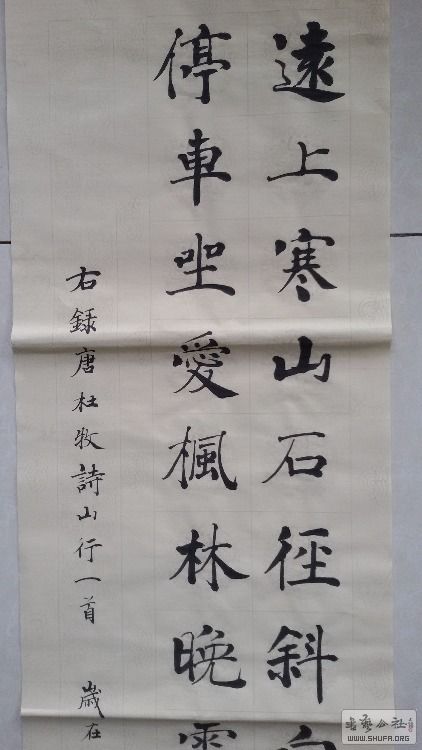 遠上寒山石徑斜白
停車坐愛楓林晚霜
右録唐杜牧詩山行一首 歲在
书艺公社
WWW.SHUFA.ORG